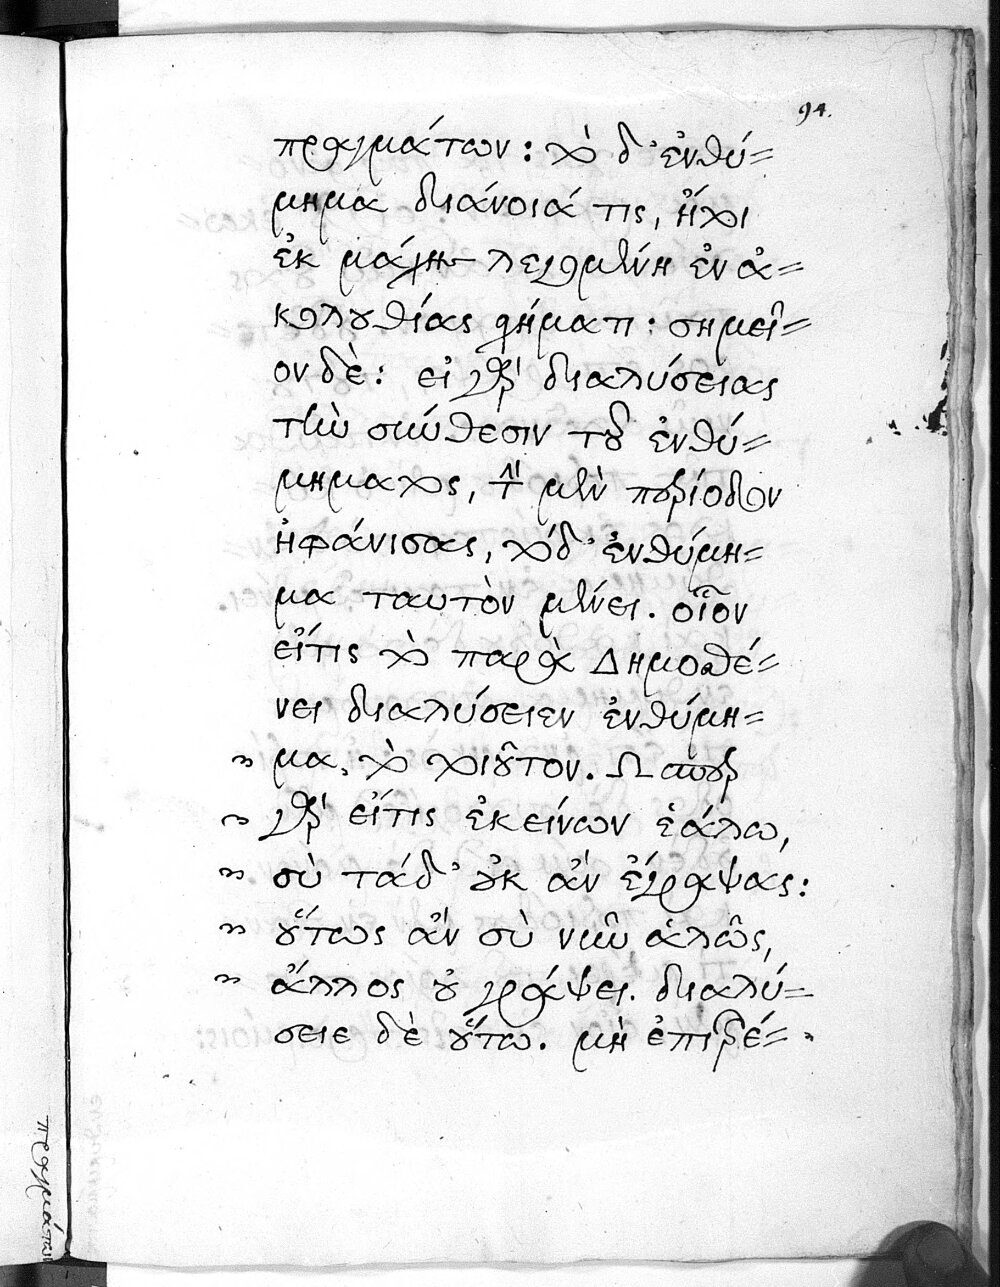 94.
πραγμάτων : τὸ δ' ἐνθύ=
μημα διάνοιά τις, ἤτοι
ἐκ μάχης λεγομένη ἐν ἀ=
κολουθίας σχήματι : σημεῖ=
ον δὲ : εἰ γὰρ διαλύσειας
τὴν σύνθεσιν τοῦ ἐνθύ=
μηματος, τὴν μὲν περίοδον
ἠφάνισας, τὸ δ' ἐνθύμη=
μα ταυτὸν μένει. οἷον
εἴτις τὸ παρὰ Δημοσθέ=
νει διαλύσειεν ἐνθύμη=
μα, τὸ τοιοῦτον. Ὥσπερ
γὰρ εἴτις ἐκείνων ἑάλω,
σὺ τάδ' οὐκ ἂν ἔγραψας :
οὕτως ἂν σὺ νῦν ἁλῶς,
ἄλλος οὐ γράψει. διαλύ=
σειε δὲ οὕτω. μὴ ἐπιτρέ=
πραγμάτων